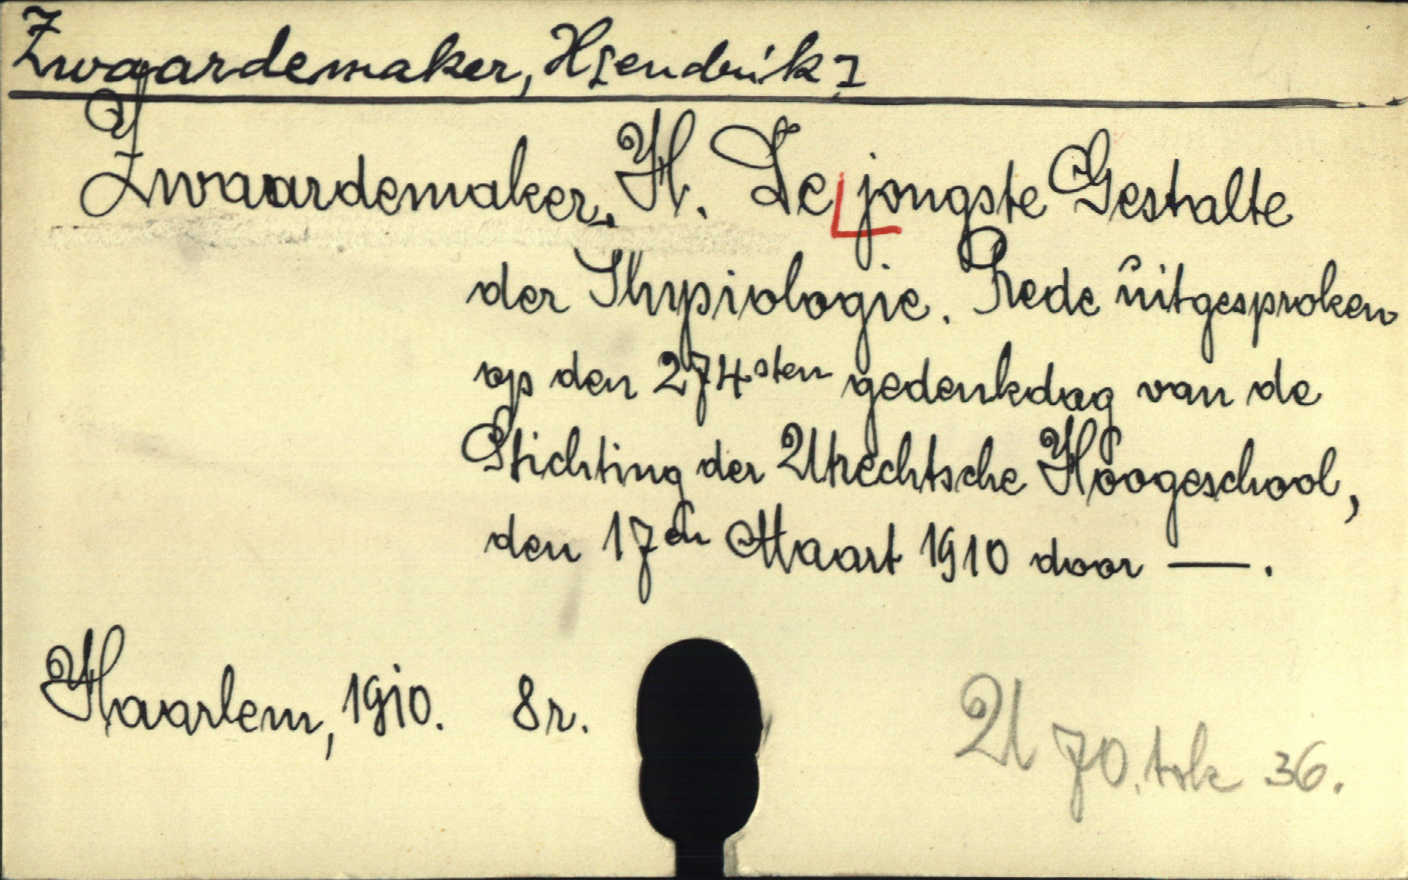 Zwaardemaker, H[endrik]
Zwaardemaker, H. De jongste Gestalte
der Phypiologie. Rede uitgesproken
op den 274sten gedenkdag van de
Stichting der Utrechtsche Hoogeschool,
den 17en Maart 1910 door —.
Haarlem, 1910. 8r.
U 70. tok 36.